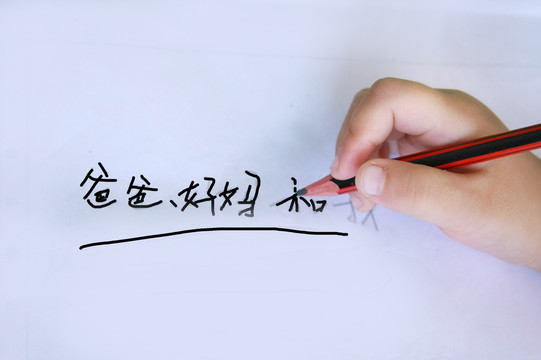 爸爸、好妈和